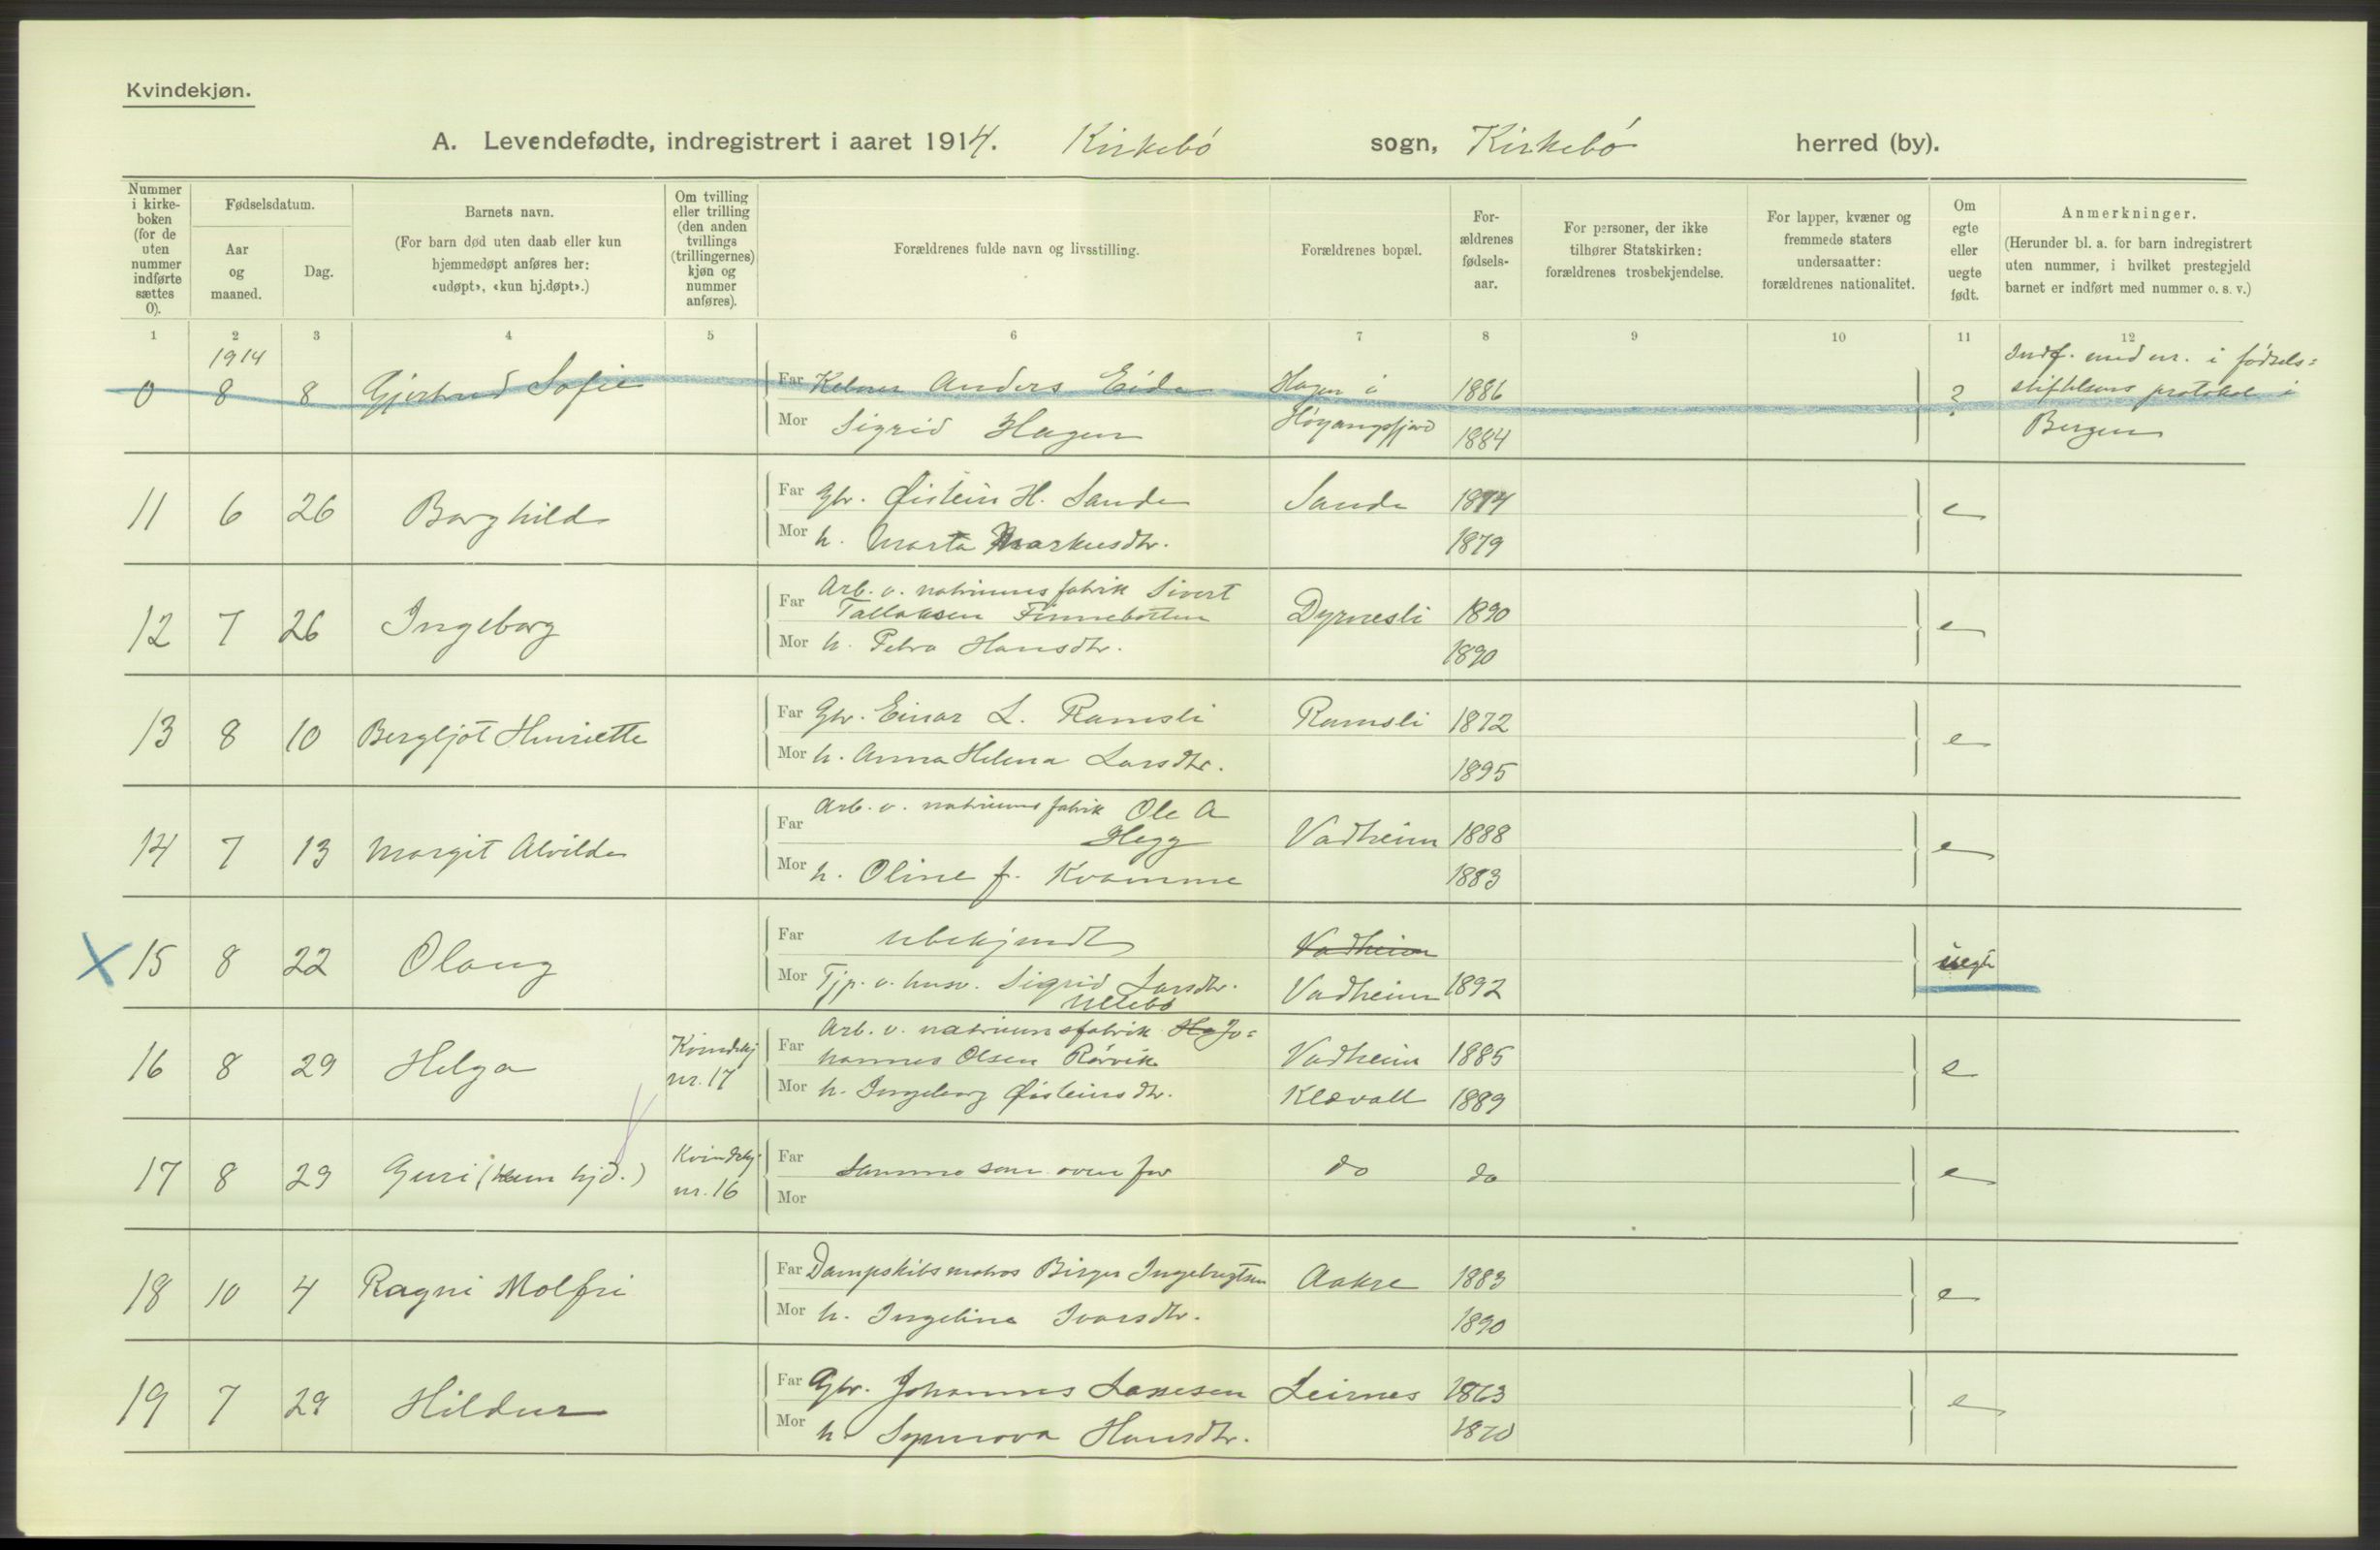 Kvindekjøn.
A. Levendefødte, indregistrert i aaret 1914. Kirkebø sogn, Kirkebø herred (by).
Nummer i kirke- boken (for de uten nummer indførte sættes 0).
Fødselsdatum.
Aar og maaned.
Dag.
Barnets navn.
(For barn død uten daab eller kun hjemmedøpt anføres her: «udøpt», «kun hj.døpt».)
Om tvilling eller trilling (den anden tvillings (trillingernes) kjøn og nummer anføres).
Forældrenes fulde navn og livsstilling.
Forældrenes bopæl.
For- ældrenes fødsels- aar.
For personer, der ikke tilhører Statskirken: forældrenes trosbekjendelse.
For lapper, kvæner og fremmede staters undersaatter: forældrenes nationalitet.
Om egte eller uegte født.
Anmerkninger.
(Herunder bl. a. for barn indregistrert uten nummer, i hvilket prestegjeld barnet er indført med nummer o. s. v.)
1 2 3 4 5 6 7 8 9 10 11 12
1914
Indf. med nr. i fødsels=
0 8 8 Gjertrud Sofie Far Kelner Anders Eide Hagen i 1886 ? stiftelsens protokol i
Mor Sigrid Hagen Høyangsfjord 1884 Bergen
11 6 26 Borghild Far Gbr. Øistein H. Sande Sande 1874 e
Mor h. Marta Markusdtr. 1879
12 7 26 Ingeborg Far Arb. v. natriumsfabrik Sivert
Tallaksen Finnebotten Dyrnesli 1890 e
Mor h. Petra Hansdtr. 1890
13 8 10 Bergljot Henriette Far Gbr. Einar L. Ramsli Ramsli 1872 e
Mor h. Anna Helena Larsdtr. 1895
14 7 13 Margit Alvilde Far Arb. v. natriumsfabrik Ole A
Hegg Vadheim 1888 e
Mor h. Oline f. Kvamme 1883
X 15 8 22 Olaug Far Ubekjendt Vadheim uegte
Mor Tjp. v. husv. Sigrid Larsdtr. Vadheim 1892
Ullebø
16 8 29 Helga Kvindekj nr. 17 Far Arb. v. natriumsfabrik Ha Jo=
hannes Olsen Rørvik Vadheim 1885 e
Mor h. Ingeborg Øisteinsdtr. Klævoll 1889
17 8 29 Guri (kun hjd.) Kvindekj. nr. 16 Far Mor Samme som ovenfor do do e
18 10 4 Ragni Molfri Far Dampskibsmatros Birger Ingebrigtsen Aakre 1883 e
Mor h. Ingelina Ivarsdtr. 1890
19 7 29 Hildur Far Gbr. Johannes Lassesen Leirnes 1863 e
Mor h. Synnova Hansdtr. 1870